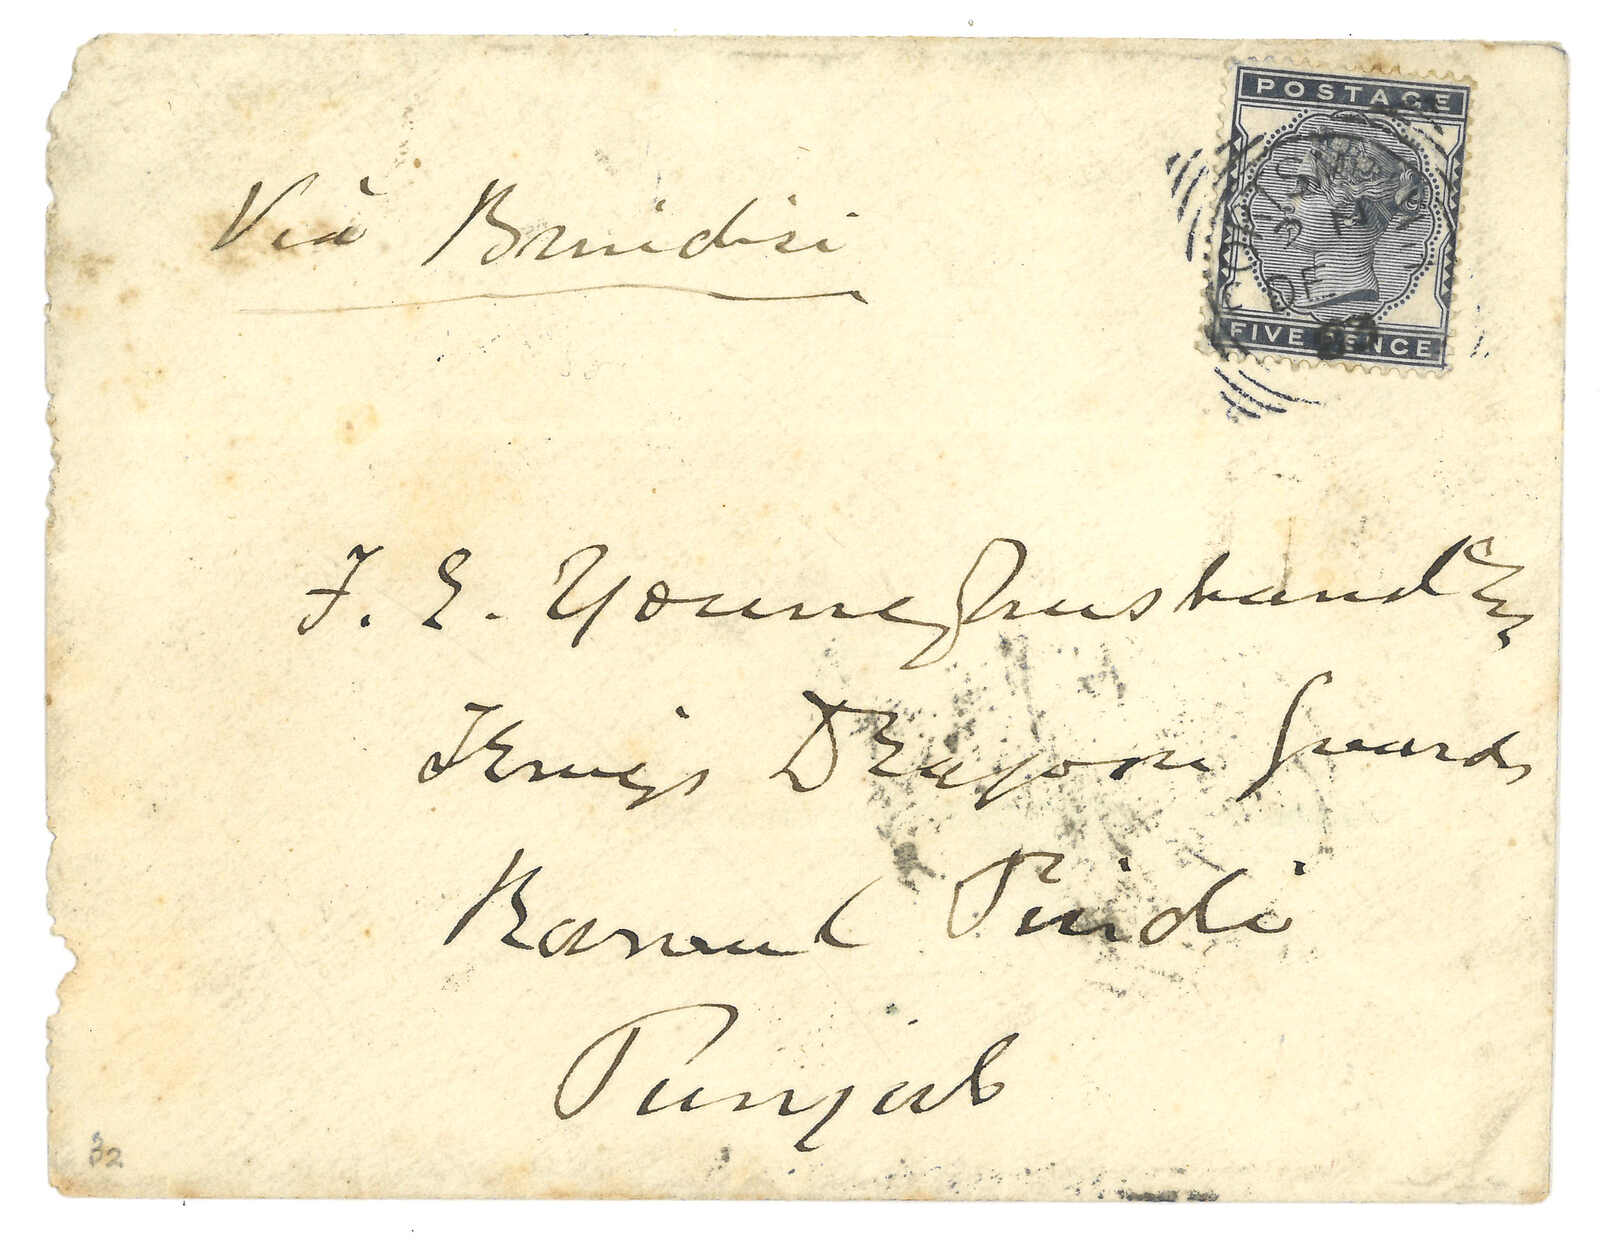 Viâ Brindisi
POSTAGE
FIVE PENCE
DE
F. E. Younghusband Esq
Kings Dragoon Guards
Rawul Pindi
Punjab
32